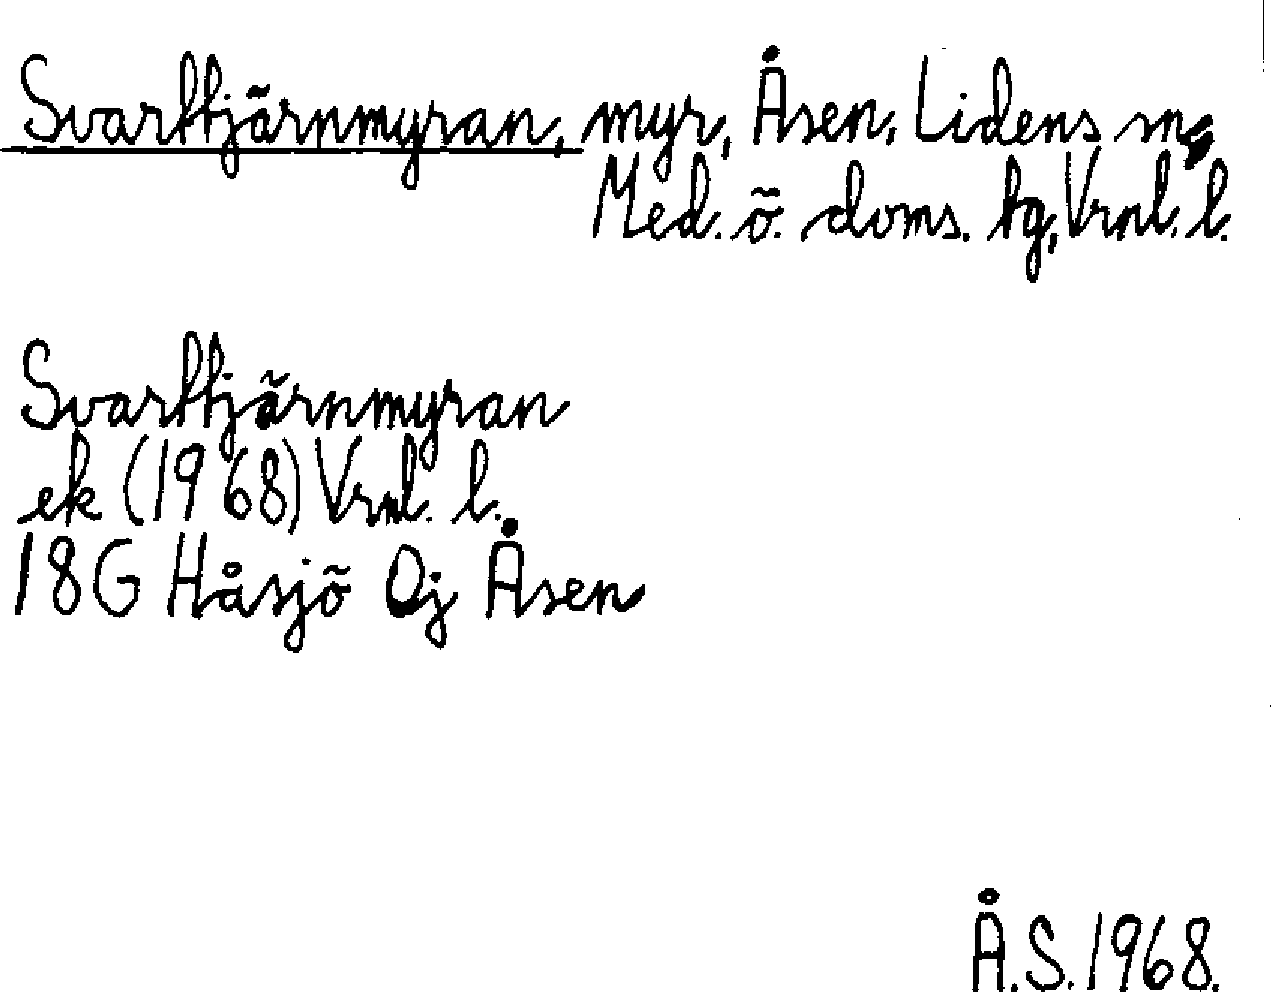 Svarttjärnmyran, myr, Åsen, Lidens sn,
Med. ö. doms. tg, Vrnl. l.
Svarttjärnmyran
ek (1968) Vrnl. l.
18G Håsjö 0j Åsen
Å.S. 1968.